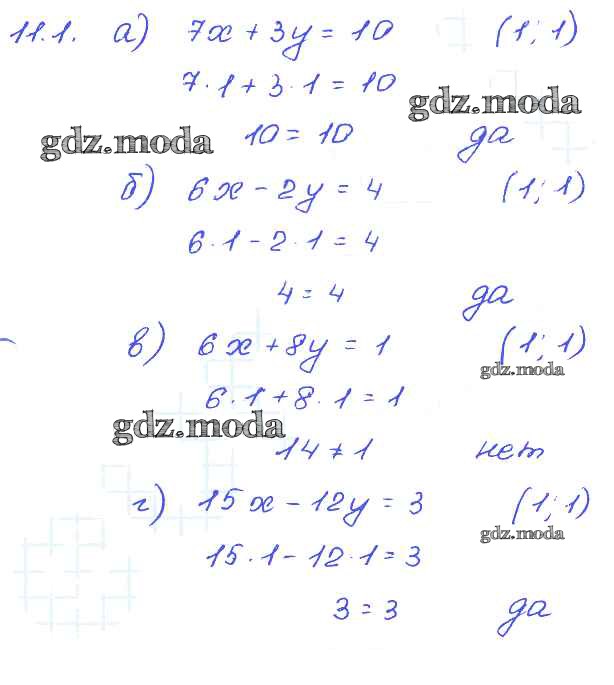 11.1. а) 7x + 3y = 10 (1; 1)
7·1 + 3·1 = 10
gdz.moda
gdz.moda
10 = 10 да
б) 6x − 2y = 4 (1; 1)
6·1 − 2·1 = 4
4 = 4 да
в) 6x + 8y = 1 (1; 1)
gdz.moda
6·1 + 8·1 = 1
gdz.moda
14 ≠ 1 нет
г) 15x − 12y = 3 (1; 1)
gdz.moda
15·1 − 12·1 = 3
3 = 3 да